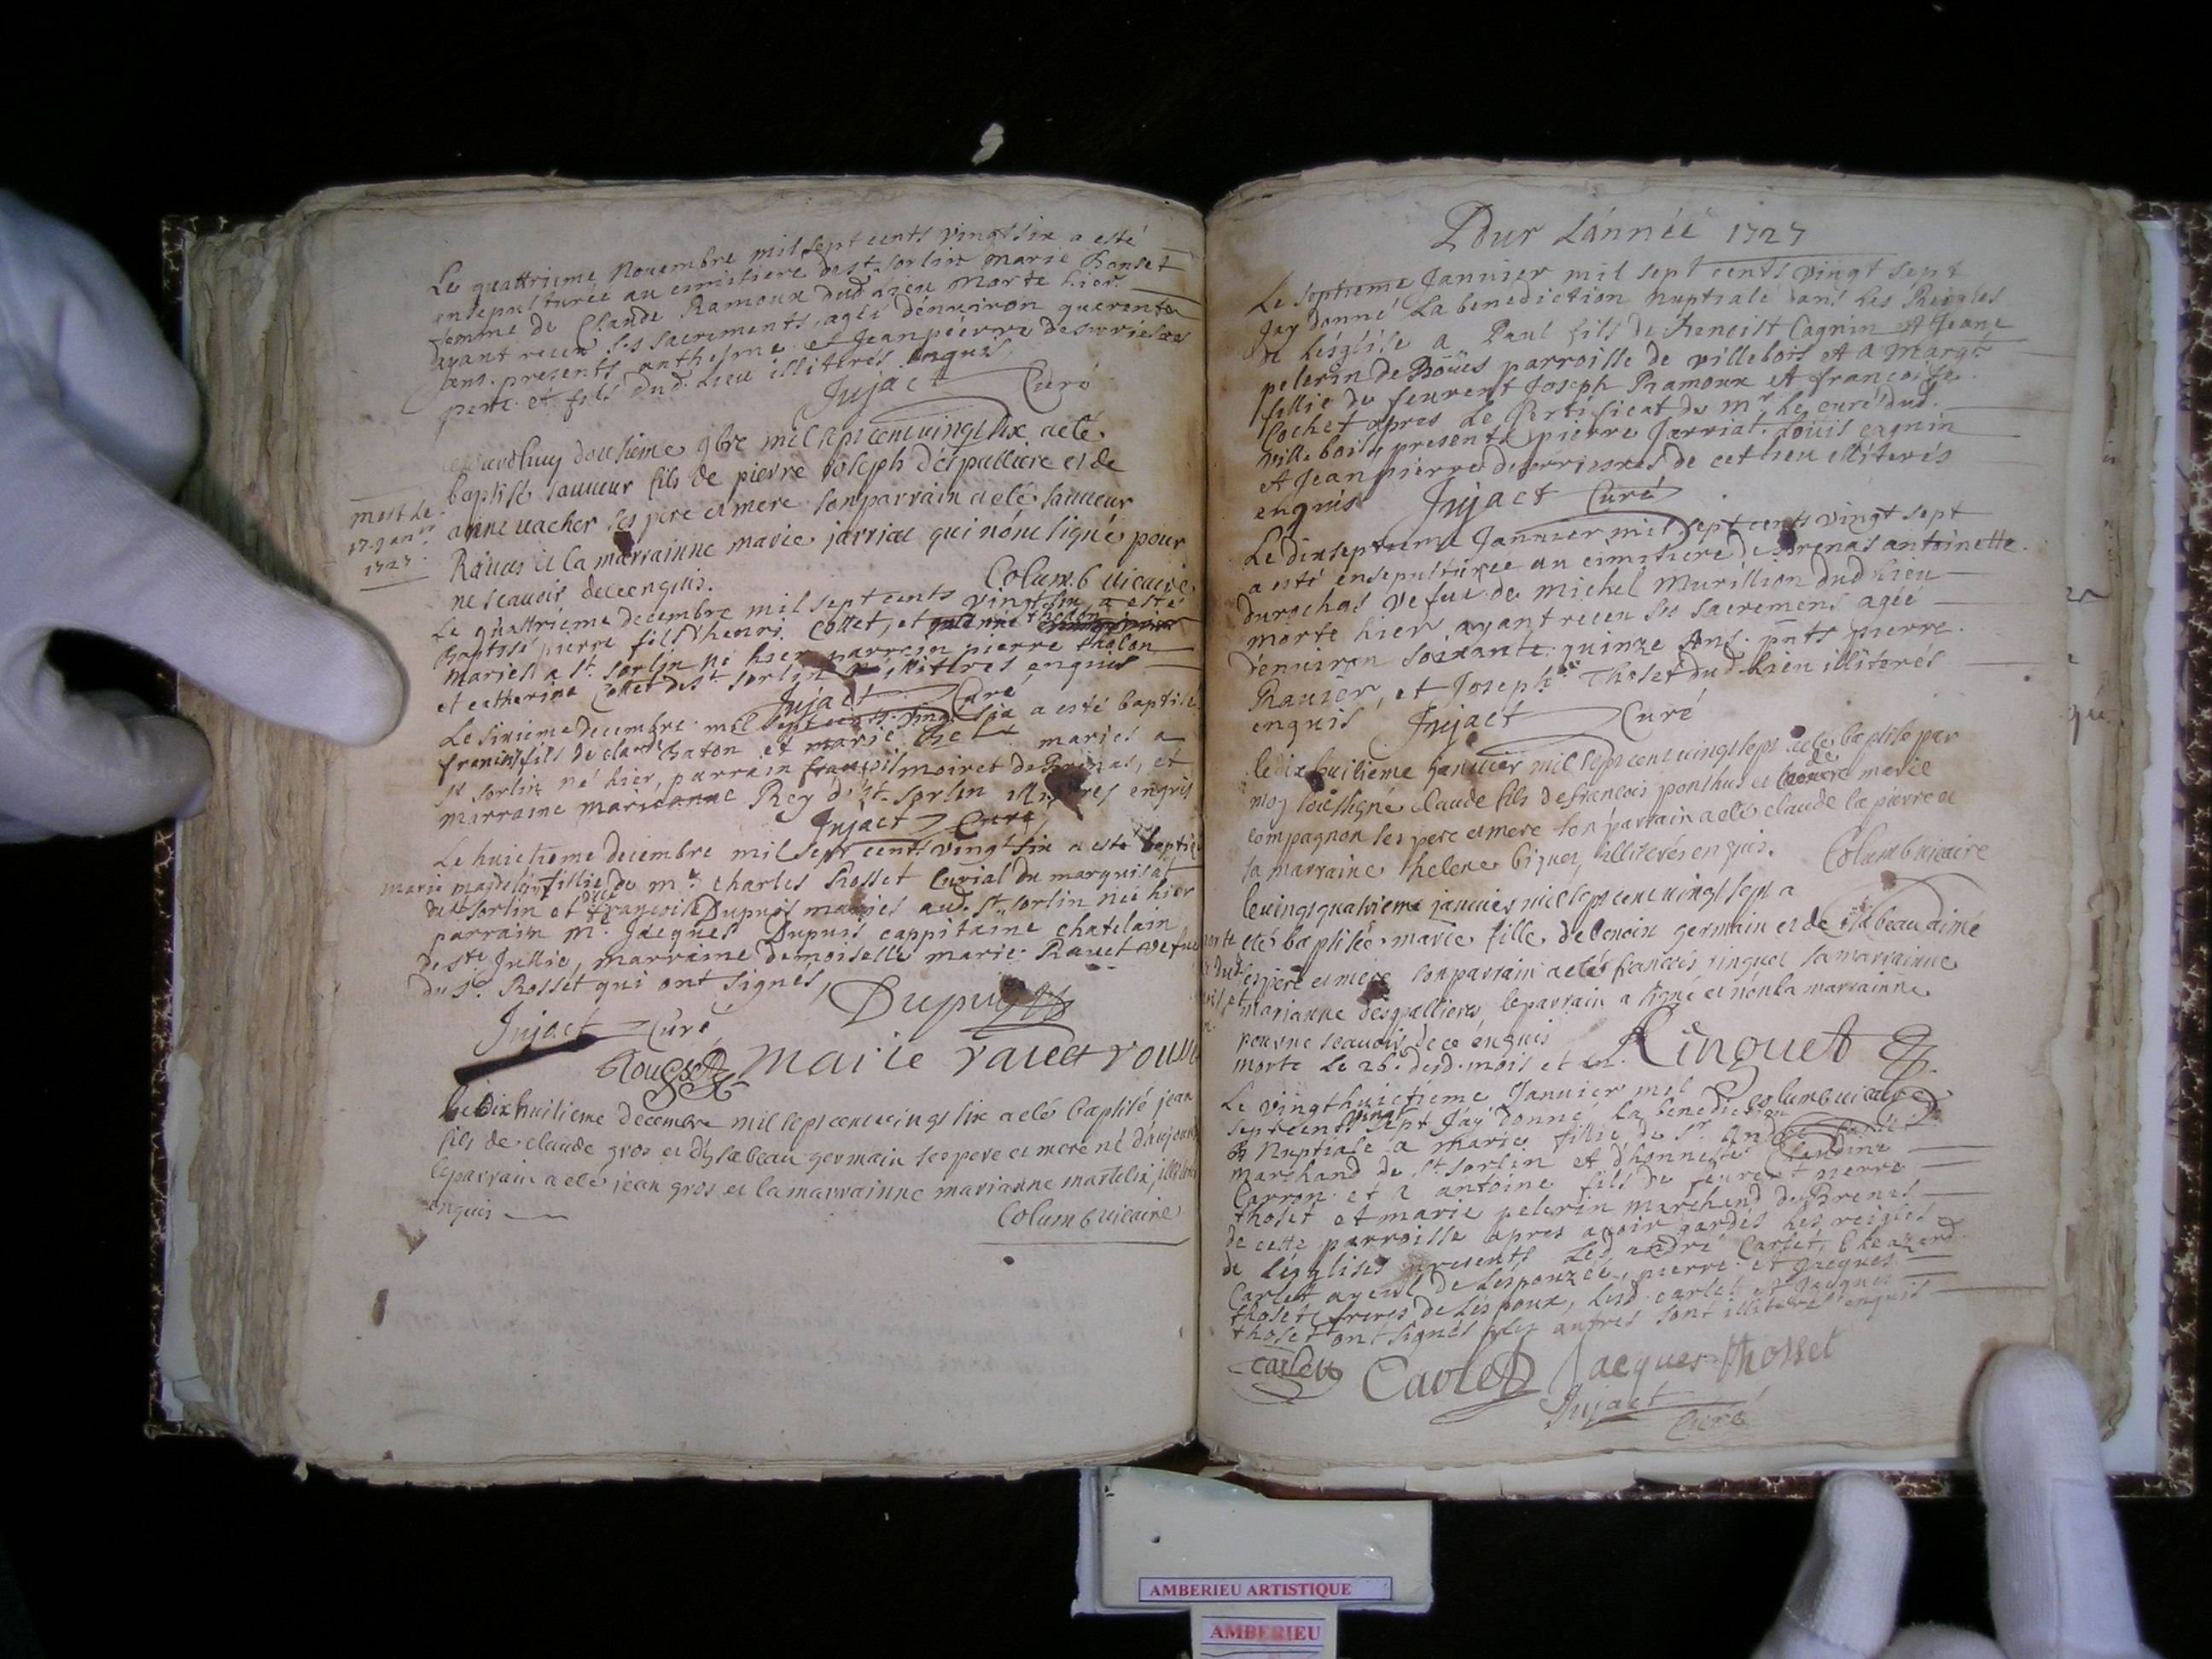 Le quattrieme Novembre mil sept cents vingt six a esté
ensepulturée au cimitiere de st. sorlin Marie Bonset
femme de Claude Ramoux dud. Lieu morte hier
ayant receu ses sacrements, agée dénuiron quarente
ans. presents anthesme et Jean pierre
pere et fils dud. Lieu illiterés enquis
Jujact Curé
douzieme 9bre mil sept cent vingt six a eté
baptisé sauueur fils de pierre joseph déspalliere et de
anne uacher ses pere et mere son parrain a eté sauueur
Rauas et la marrainne marie jarriat qui nónt signé pour
ne scauoir de ce enquis.
Columb uicaire
mort le
17. Janr
1727
Le quattriéme decembre mil sept cents vingt six a esté
baptisé pierre fils d'henri Collet, et tholon
mariés a st. sorlin né hier parrain pierre tholon
et catherine Collet de st. sorlin illitérés enquis
Jujact Curé
Le sixieme decembre mil sept cents vingt six a esté baptisé
francois fils de claude Chaton et marie mariés a
st sorlin né hier, parrain françois moiret de Brenas, et
marraine marieanne Rey de st. sorlin illiterés enquis
Jujact Curé
Le huictieme decembre mil sept cents vingt six a esté baptisé
marie magdeleine fillie de mr. Charles Rosset Curial du marquisat
de st sorlin et dlle françoise Dupuis mariés aud. st. sorlin née hier
parrain mr. Jacques Dupuis cappitaine chatelain
de ste Jullie, marraine demoiselle marie Rauet vefue
du sr. Rosset qui ont signés,
Dupuis
Jujact Curé
Rousset Marie rauet
Le dix huitieme decembre mil sept cent vingt six a eté baptisé jean
fils de claude gros et d'ysabeau germain ses pere et mere né d'aujourd
le parrain a eté jean gros et la marrainne marianne martelin,
enquis
Columb uicaire
Pour L'année 1727
Le septieme Januier mil sept cents vingt sept
Jay donné La benediction nuptiale dans Les Reigles
de L'esglise a Paul fils de Benoist Cagnin et Jeane
pelerin de Boües parroisse de villebois et a Margte
fillie de feurent Joseph Ramoux et françoise
Cochet apres Le Certificat de mr. Le curé dud.
villebois, presents pierre Jarriat, Loüis cagnin
et Jean pierre de cet lieu illiterés
enquis Jujact Curé
Le dixseptieme Januier mil sept cents vingt sept
a esté ensepulturée au cimitiere de Brenas antoinette
durochas vefue de michel Murillion dud Lieu
morte hier ayant receu ses sacremens agée
dénuiron soixante quinze Ans. pnts pierre
Rauier, et Joseph Thoset dud. Lieu illiterés
enquis Jujact Curé
le dix huitieme januier mil sept cent vingt sept a eté baptisé par
moy soussigné claude fils de francois ponthus et de marie
compagnon ses pere et mere son parrain a eté claude la pierre et
sa marraine helene biguet, illiterés enquis.
Columb uicaire
le vingt quatrieme januier mil sept cent vingt sept a
eté baptisée marie fille de benoit germain et de isabeau aimé
ses pere et mere son parrain a eté francois ringuet sa marrainne
marianne despallieres le parrain a signé et nón la marrainne
pour ne scauoir de ce enquis Ringuet
morte Le 26e. desd. mois et an.
Columb uicaire
Le vingthuictieme Januier mil
septcents vingt sept Jay donné La benediction
Nuptiale a marie fillie de sr. André Carlet
marchand de st sorlin et d'honneste Claudine
Carron et a antoine fils de feurent pierre
thoset et marie pelerin marchand de Brenas
de cette parroisse apres avoir gardés Les reigles
de L'esglises presents Led. andré Carlet,
Carlet ayeul de L'espouzée, pierre et Jacques
thoset freres de L'espoux, Lesd. carlet et Jacques
thoset ont signés Les autres sont illiterés enquis
Carlet Carlet Jacques Thosset
Jujact
Curé
AMBERIEU ARTISTIQUE
AMBERIEU